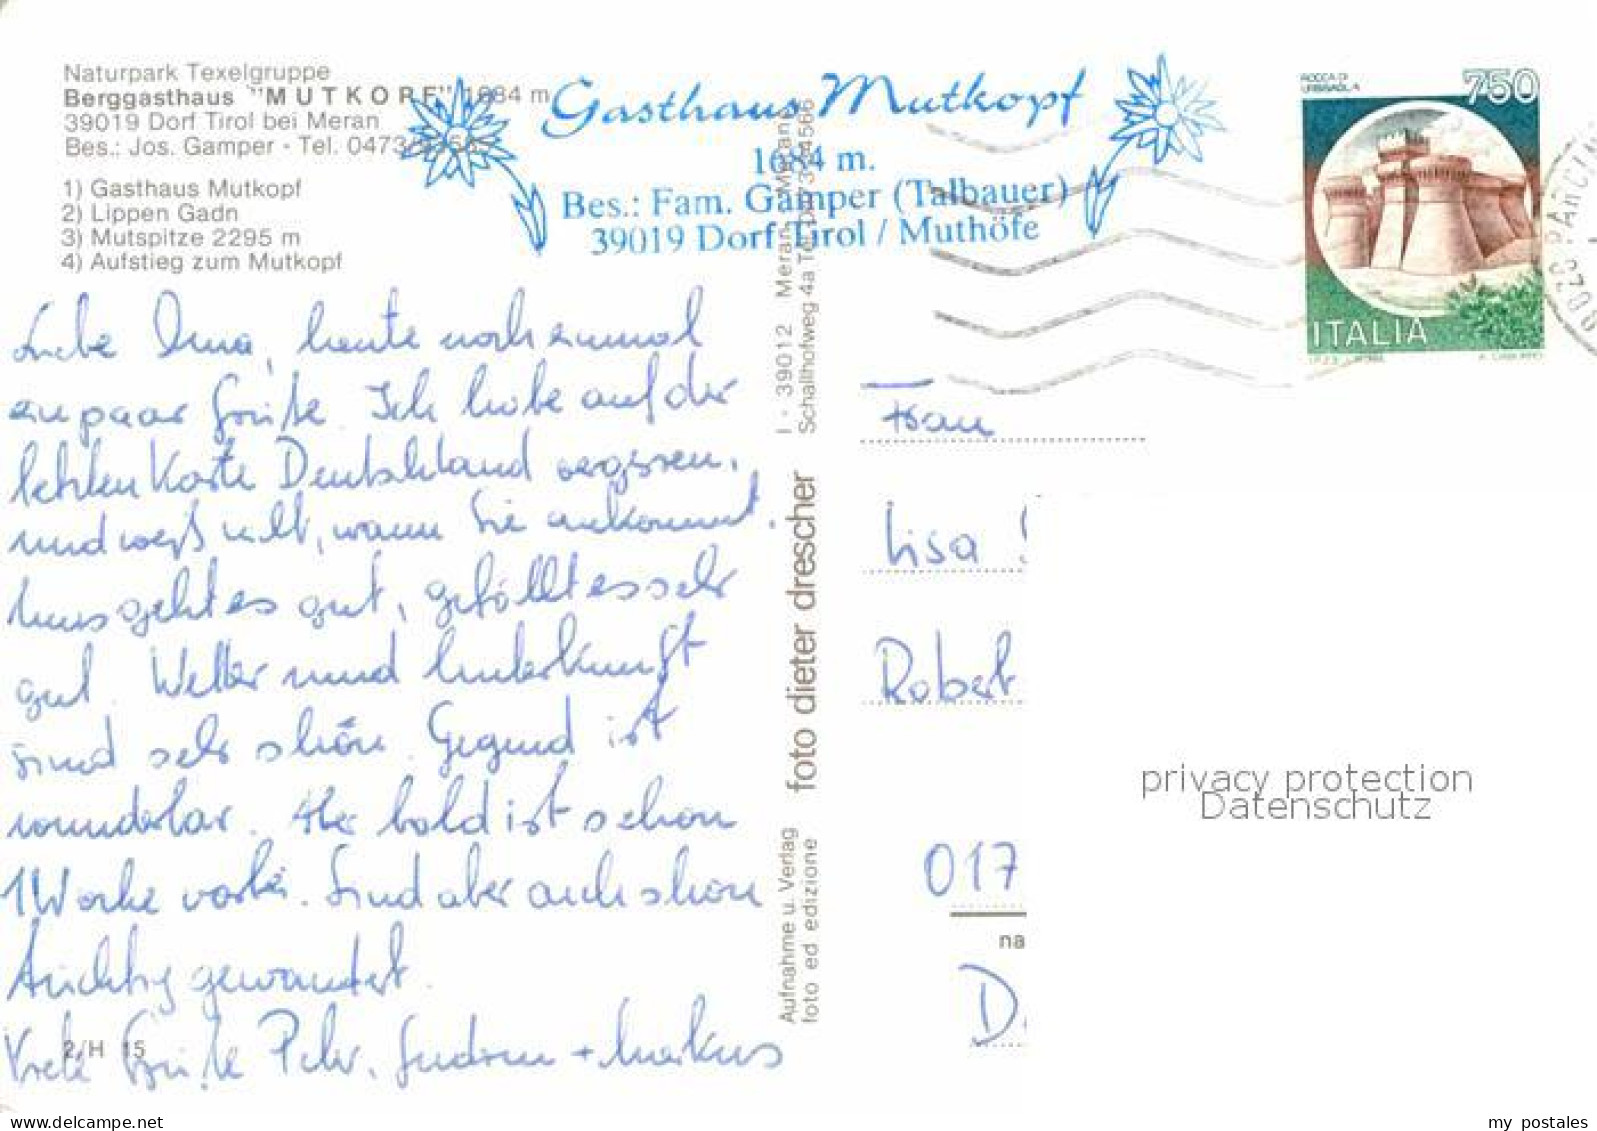 Naturpark Texelgruppe
Berggasthaus "MUTKOPF" 1684 m
39019 Dorf Tirol bei Meran
Bes.: Jos. Gamper - Tel. 0473/
1) Gasthaus Mutkopf
2) Lippen Gadn
3) Mutspitze 2295 m
4) Aufstieg zum Mutkopf
Gasthaus Mutkopf
1684 m.
Bes.: Fam. Gamper (Talbauer)
39019 Dorf Tirol / Muthöfe
ROCCA DI
URBISAGLIA
750
ITALIA
Liebe Oma, heute noch einmal
ein paar Grüße. Ich habe auf der
letzten Karte Deutschland vergessen,
und weiß nicht, wann Sie ankommt.
Uns geht es gut, gefällt es sehr
gut. Wetter und Unterkunft
sind sehr schön. Gegend ist
wunderbar. Aber bald ist schon
1 Woche vorbei. Sind aber auch schon
tüchtig gewandert.
Viele Grüße Peter, Gudrun + Markus
2/H 15
Aufnahme u. Verlag
foto ed edizione
foto dieter drescher
I - 39012 Meran - Merano
Schallhofweg 4a Tel.
Frau
Lisa
Robert
017
na
D
privacy protection
Datenschutz
my postales